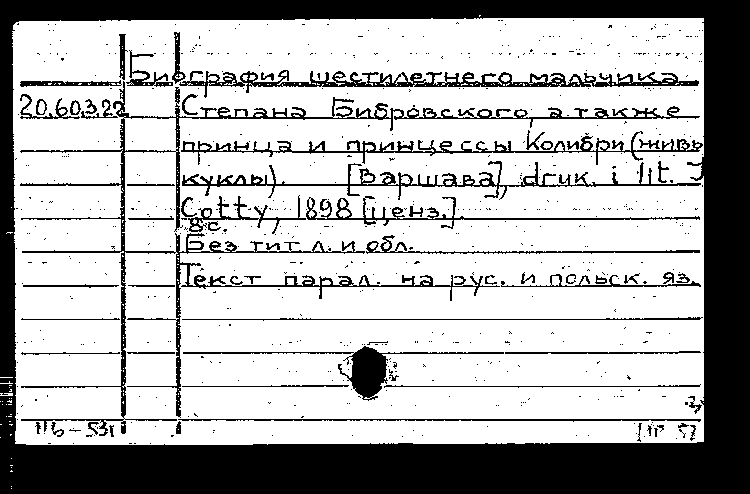 Биография шестилетнего мальчика
20.60.3.22 Степана Бибровского, а также
принца и принцессы Колибри (живы
куклы). [Варшава], druk. i lit. J
Cotty, 1898 [ценз.].
8 с.
Без тит. л. и обл.
Текст парал. на рус. и польск. яз.
116-531